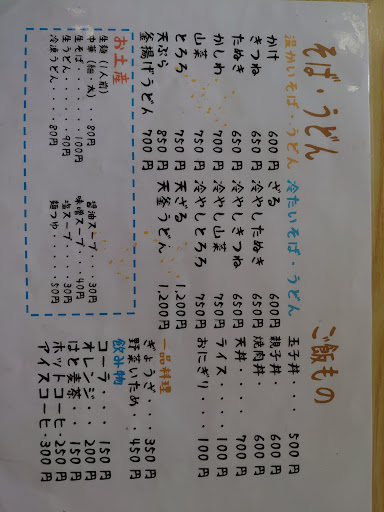 そば・うどん
温かいそば・うどん
かけ 600円
きつね 650円
たぬき 650円
かしわ 700円
山菜 750円
とろろ 750円
天ぷら 850円
釜揚げうどん 700円
冷たいそば・うどん
ざる 600円
冷やしたぬき 650円
冷やしきつね 650円
冷やし山菜 750円
冷やしとろろ 750円
天ざる 1,200円
天釜うどん 1,200円
ご飯もの
玉子丼・・・ 500円
親子丼・・ 600円
焼肉丼・・ 600円
天丼・・・ 700円
ライス・・・ 100円
おにぎり・・ 100円
一品料理
ぎょうざ・・・ 350円
野菜いため・・ 450円
飲み物
コーラ・・・ 150円
オレンジ・・・ 200円
はと麦茶・・・ 150円
ホットコーヒー・250円
アイスコーヒー・300円
お土産
生麺(1人前)
中華(細・太) 80円
生そば・・・・100円
生うどん・・・90円
冷凍うどん・・80円
醤油スープ・・・30円
味噌スープ・・・40円
塩スープ・・・・30円
麺つゆ・・・・50円